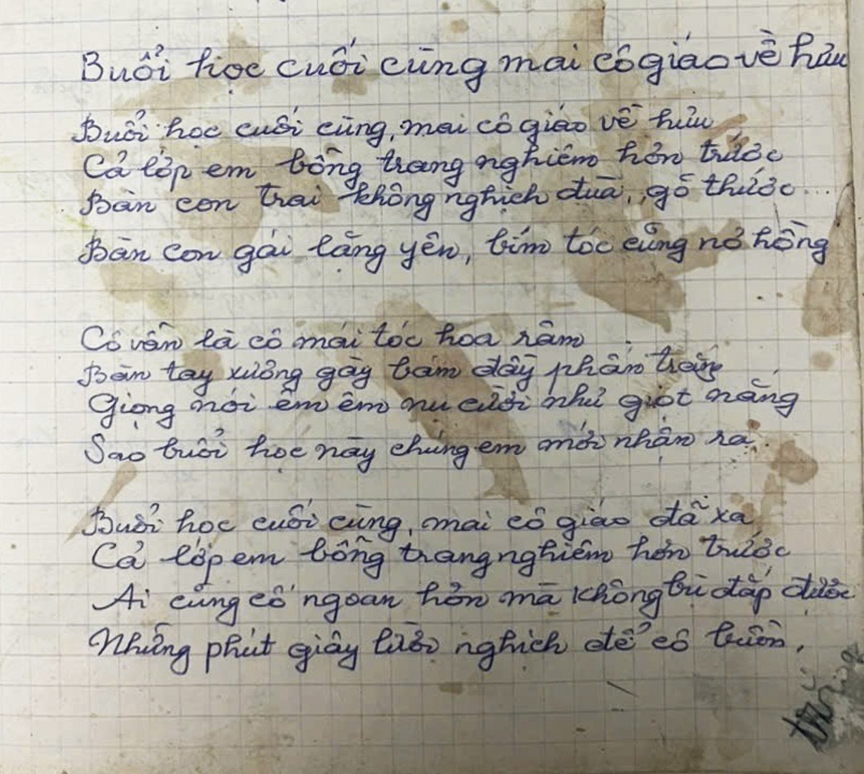 Buổi học cuối cùng mai cô giáo về hưu
Buổi học cuối cùng, mai cô giáo về hưu
Cả lớp em bỗng trang nghiêm hơn trước
Bàn con trai không nghịch đùa, gõ thước...
Bàn con gái lặng yên, bím tóc cũng nơ hồng
Cô vẫn là cô mái tóc hoa râm
Bàn tay xương gầy bám đầy phấn trắng
Giọng nói êm êm nụ cười như giọt nắng
Sao buổi học này chúng em mới nhận ra.
Buổi học cuối cùng, mai cô giáo đã xa
Cả lớp em bỗng trang nghiêm hơn trước
Ai cũng cố ngoan hơn mà không bù đắp được
Những phút giây lười nghịch để cô buồn.